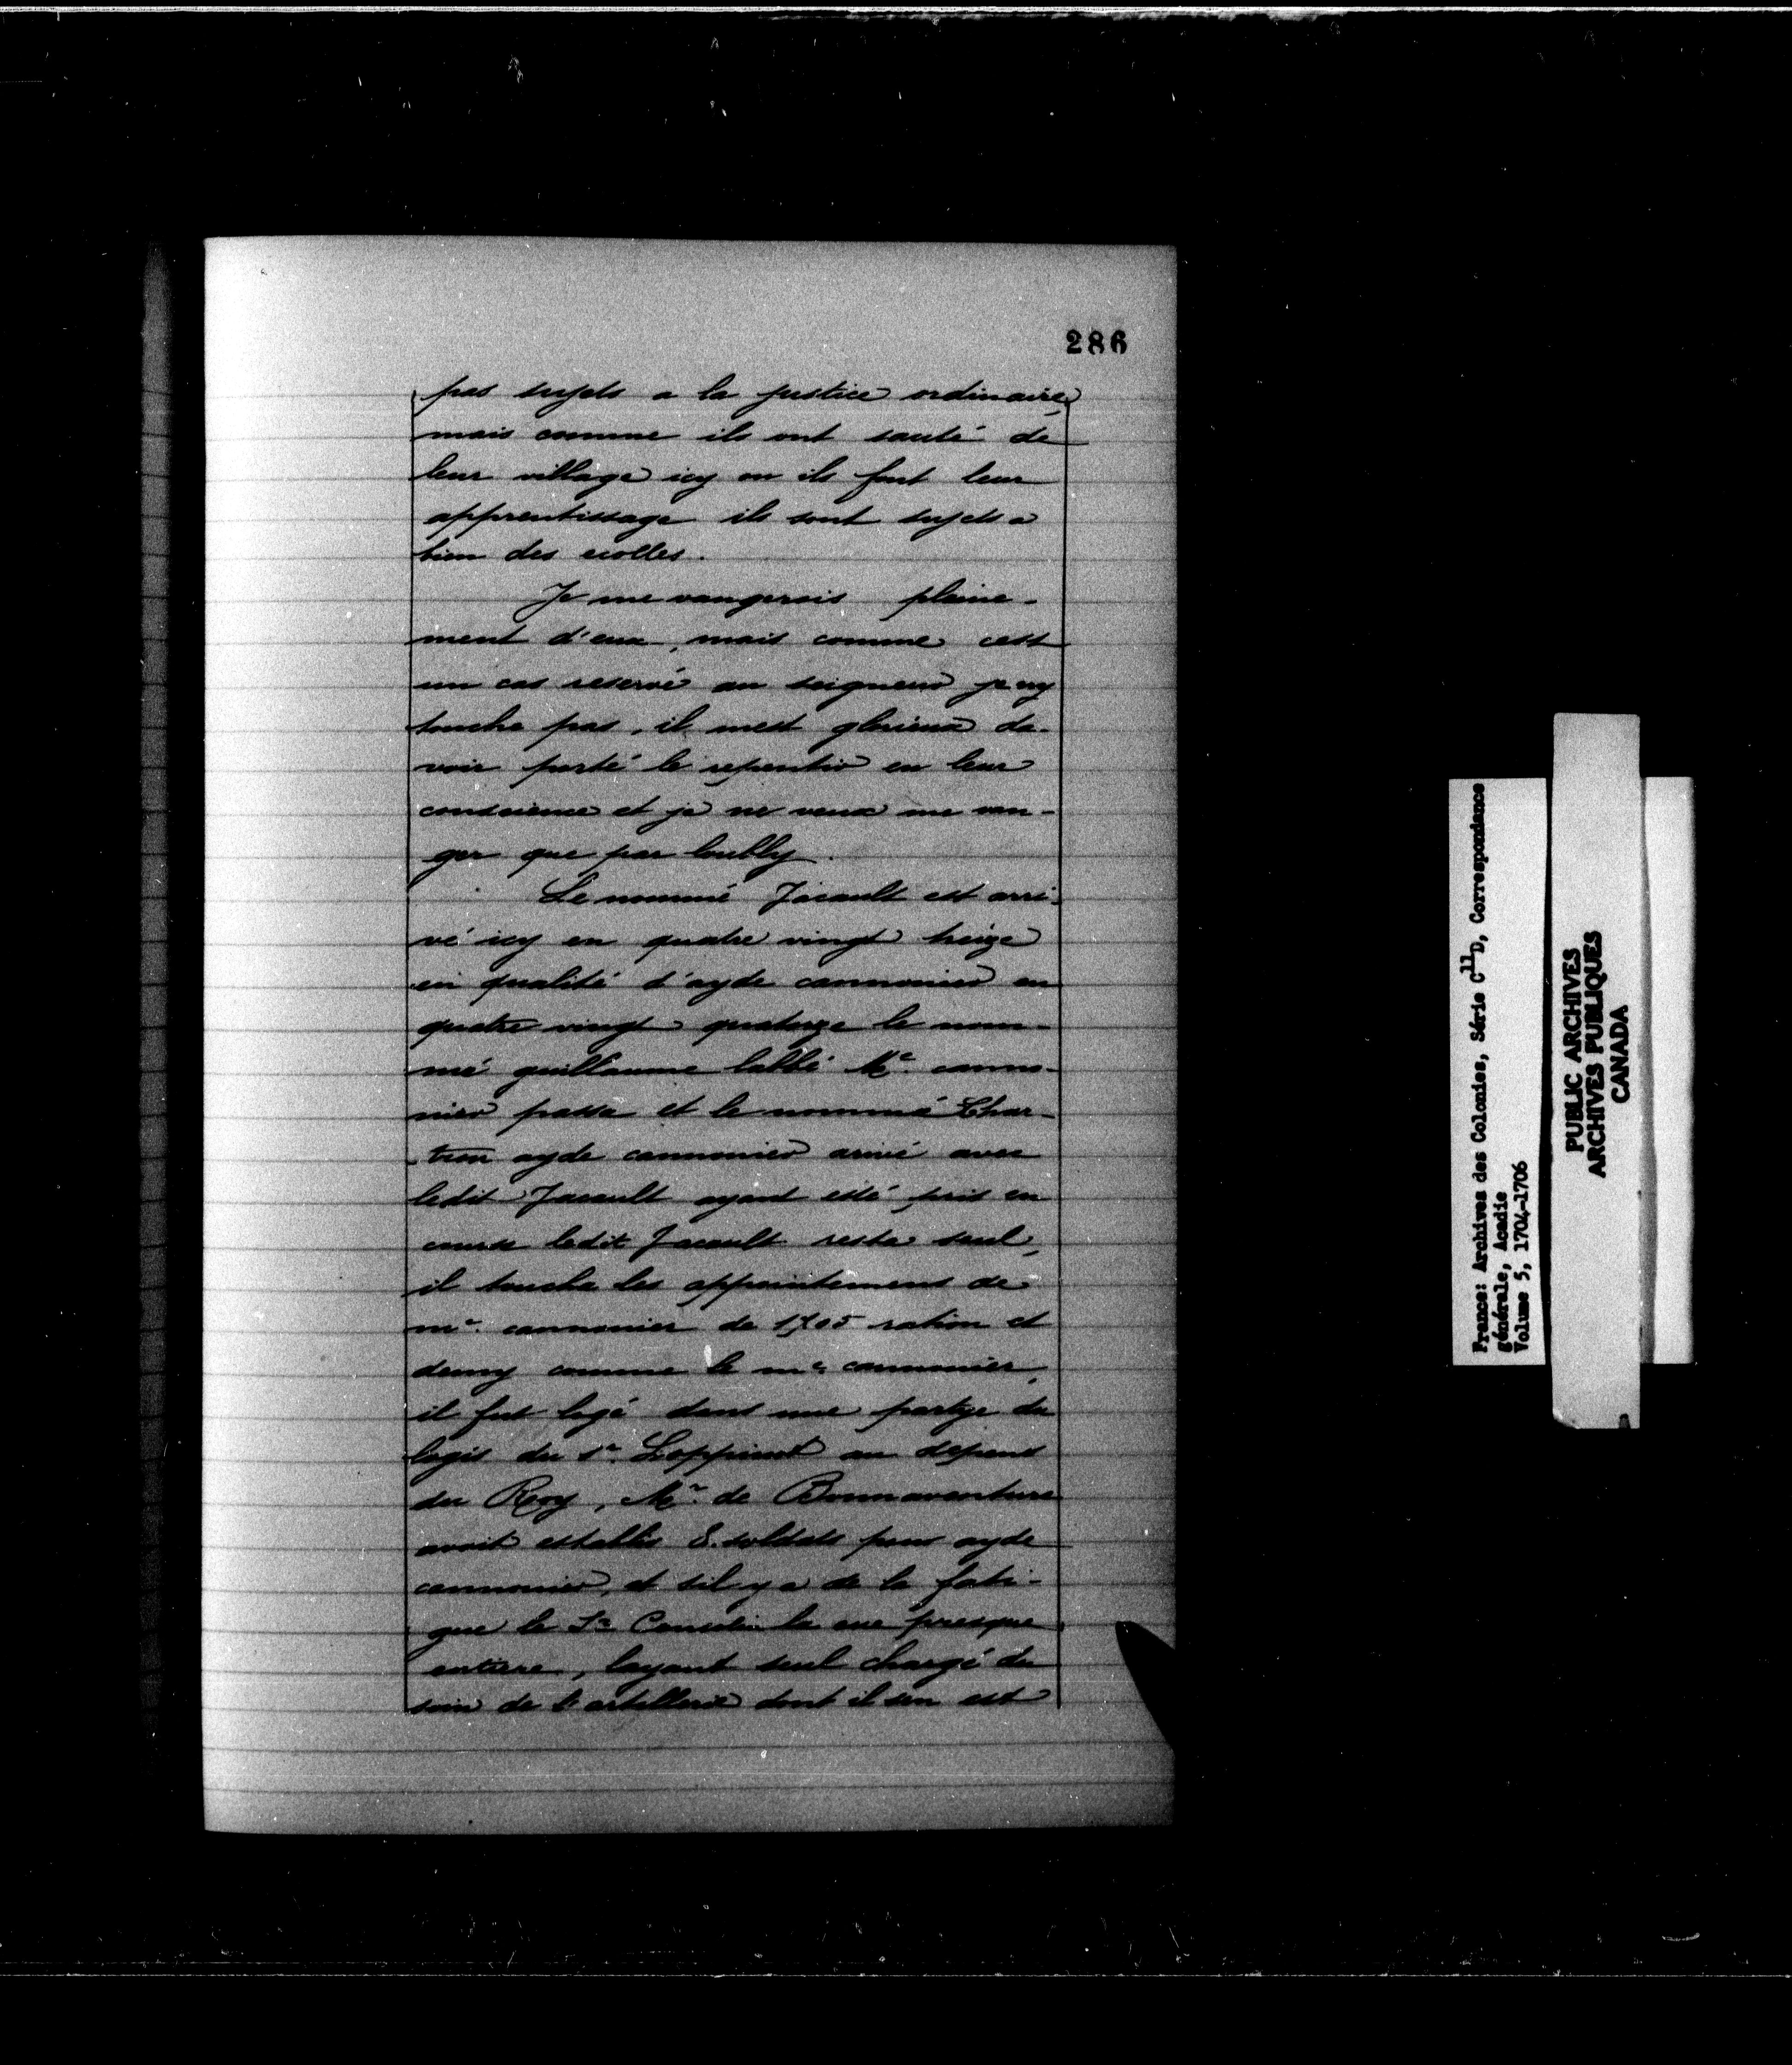 286
pas sujets a la justice ordinaire,
mais comme ils ont sauté de
leur village icy ou ils font leur
apprentissage ils sont sujets a
bien des ecolles.
Je me vangerois pleine-
ment d'eux, mais comme cest
un cas reservé au seigneur je ny
touche pas, il mest glorieux da-
voir porté le repentir en leur
conscience et je ne veux me van-
ger que par loubly.
Le nommé Jacault est arri-
vé icy en quatre vingt treize
en qualité d'ayde cannonier en
quatre vingt quatorze le nom-
mé guillaume labbé Me. canno-
nier passa et le nommé Char-
tron ayde cannonier arivé avec
ledit Jacault ayant esté pris en
course ledit Jacault resta seul,
il touche les appointemens de
me. cannonier de 1705 ration et
demy comme le me. cannonier,
il fut logé dans une partye du
logis du Sr. Loppinot au depens
du Roy, Mr. de Bonnaventure
avoit establis 8. soldats pour ayde
cannonier, et sil y a de la fati-
gue le Sr. la eue presque
entiere, layant seul chargé du
soin de l'artillerie dont il sen est
France: Archives des Colonies, Série C11D, Correspondance
générale, Acadie
Volume 5, 1704-1706
PUBLIC ARCHIVES
ARCHIVES PUBLIQUES
CANADA